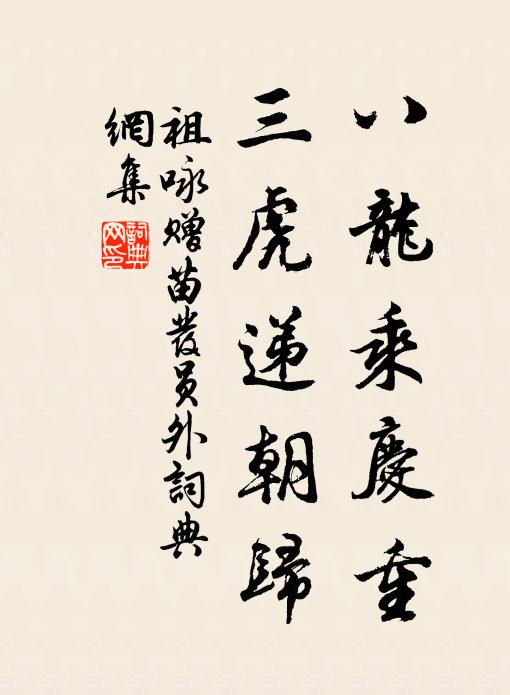 八龍乘慶重
三虎递朝歸
祖咏赠苗發員外詞典
網集
詞典网印